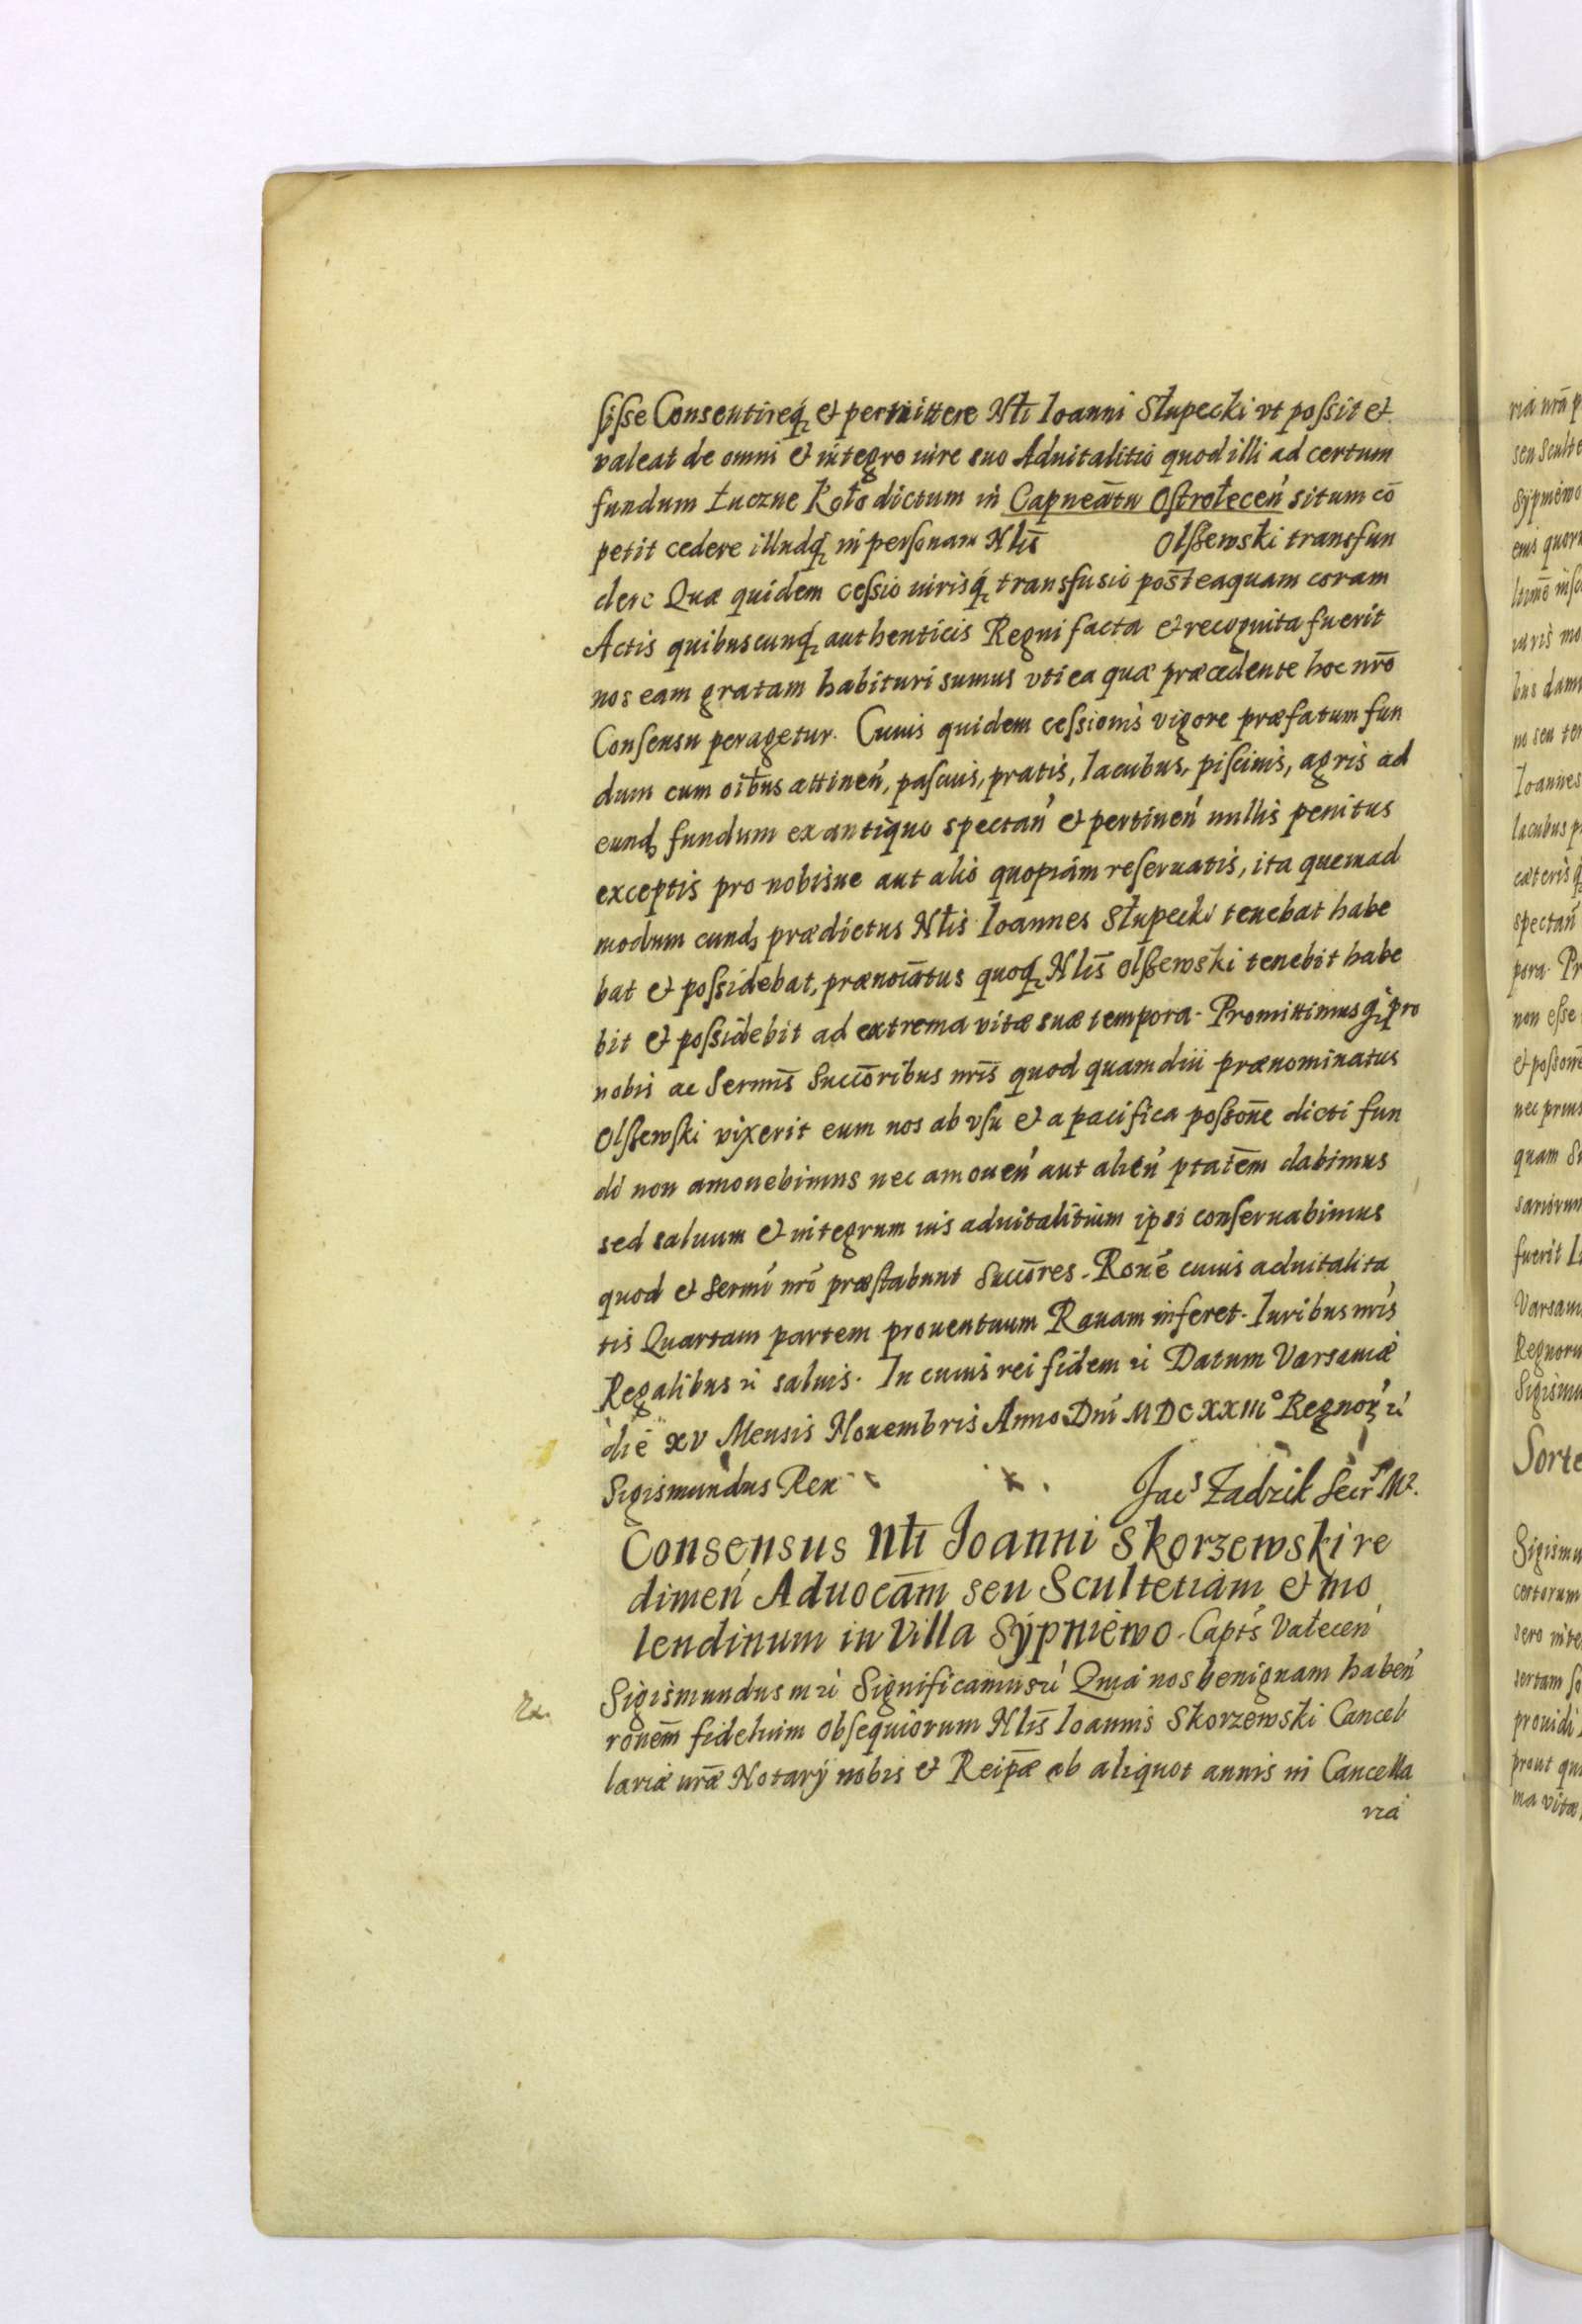 sisse Consentireq́ꝫ et permittere Nłi Ioanni Słupecki vt possit et
valeat de omni et integro iure suo Aduitalitio quod illi ad certum
fundum Łuczne Koło dictum in Capneātu Ostrołecen̄ situm cō
petit cedere illudq́ꝫ in personam Nlīs Olszewski transfun
dere Quæ quidem cessio iurisq́ꝫ transfusio posteaquam coram
Actis quibuscunq́ꝫ authenticis Regni facta et recognita fuerit
nos eam gratam habituri sumus vti ea quæ præcedente hoc nrō
Consensu peragetur. Cuius quidem cessionis vigore præfatum fun
dum cum oibus attinen̄, pascuis, pratis, lacubus, piscinis, agris ad
eund fundum ex antiquo spectan̄ et pertinen̄ nullis penitus
exceptis pro nobisue aut alio quopiam reseruatis, ita quemad
modum eund prædictus Nłis Ioannes Słupecki tenebat habe
bat et possidebat, prænoīatus quoqꝫ Nlīs Olszewski tenebit habe
bit et possidebit ad extrema vitæ suæ tempora. Promittimusq́ꝫ pro
nobis ac Sermīs Succōribus nrīs quod quamdiu prænominatus
Olszewski vixerit eum nos ab vsu et a pacifica possōne dicti fun
di non amouebimus nec amouen̄ aut alien̄ ptatēm dabimus
sed saluum et integrum ius aduitalitium ipsi conseruabimus
quod et Sermī nrī præstabunt Succōres. Ronē cuius aduitalita
tis Quartam partem prouentuum Rauam inferet. Iuribus nrīs
Regalibus ꝛc̄ saluis. In cuius rei fidem ꝛc̄ Datum Varsauiæ
diē XV Mensis Nouembris Anno Dnī MDCXXIIIº Regnoꝝ ꝛc̄
Sigismundus Rex Jacs Zadzik Secr. Mr.
Consensus Nłi Joanni Skorzewski re
dimen̄ Aduocām seu Scultetiam et mo
lendinum in Villa Sÿpniewo. Capts̄ Vałecen̄
Sigismundus m ꝛc̄ Significamus ꝛc̄ Quia nos benignam haben̄
ronem̄ fidelium obsequiorum Nlīs Ioannis Skorzewski Cancel
lariæ nrǣ Notarÿ nobis et Reipǣ ab aliquot annis in Cancella
ria